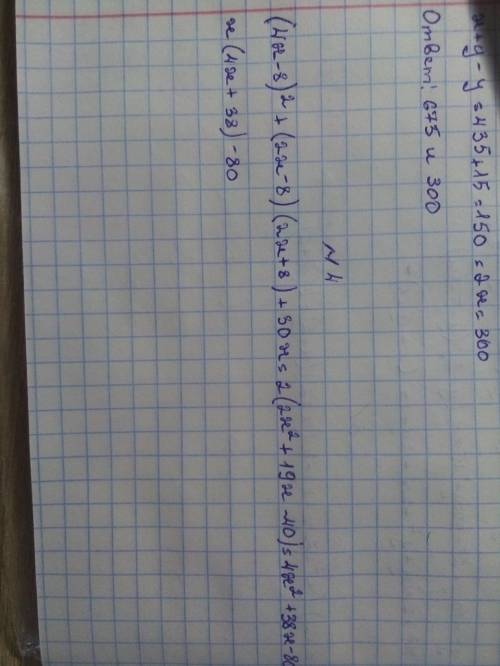 x+y-y=435+15=150=2x=300
Ответ: 675 и 300
N 4
(4x-8)² + (2x-8) (2x+8) + 30x = 2(2x² + 19x - 40) = 4x² + 38x - 80
x (4x + 38) - 80